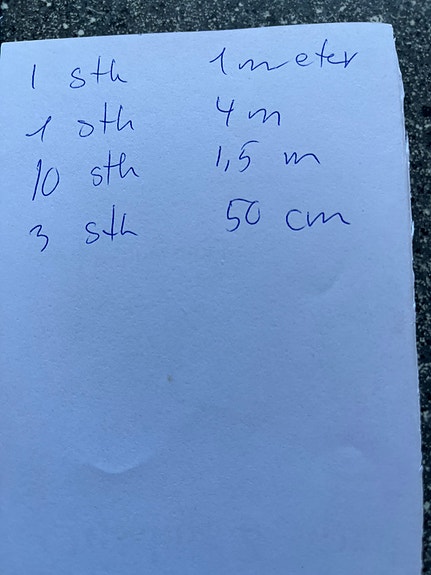 1 sth 1 meter
1 sth 4 m
10 sth 1,5 m
3 sth 50 cm